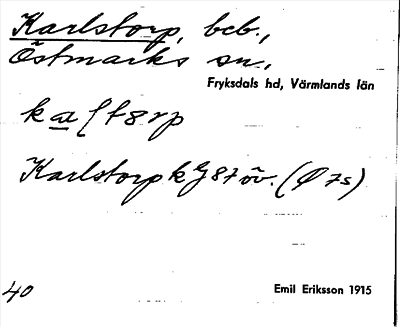 Karlstorp, bcb.,
Östmarks sn.,
Fryksdals hd, Värmlands län
Karlstorp k G 87 öv. (Ø 75)
40
Emil Eriksson 1915